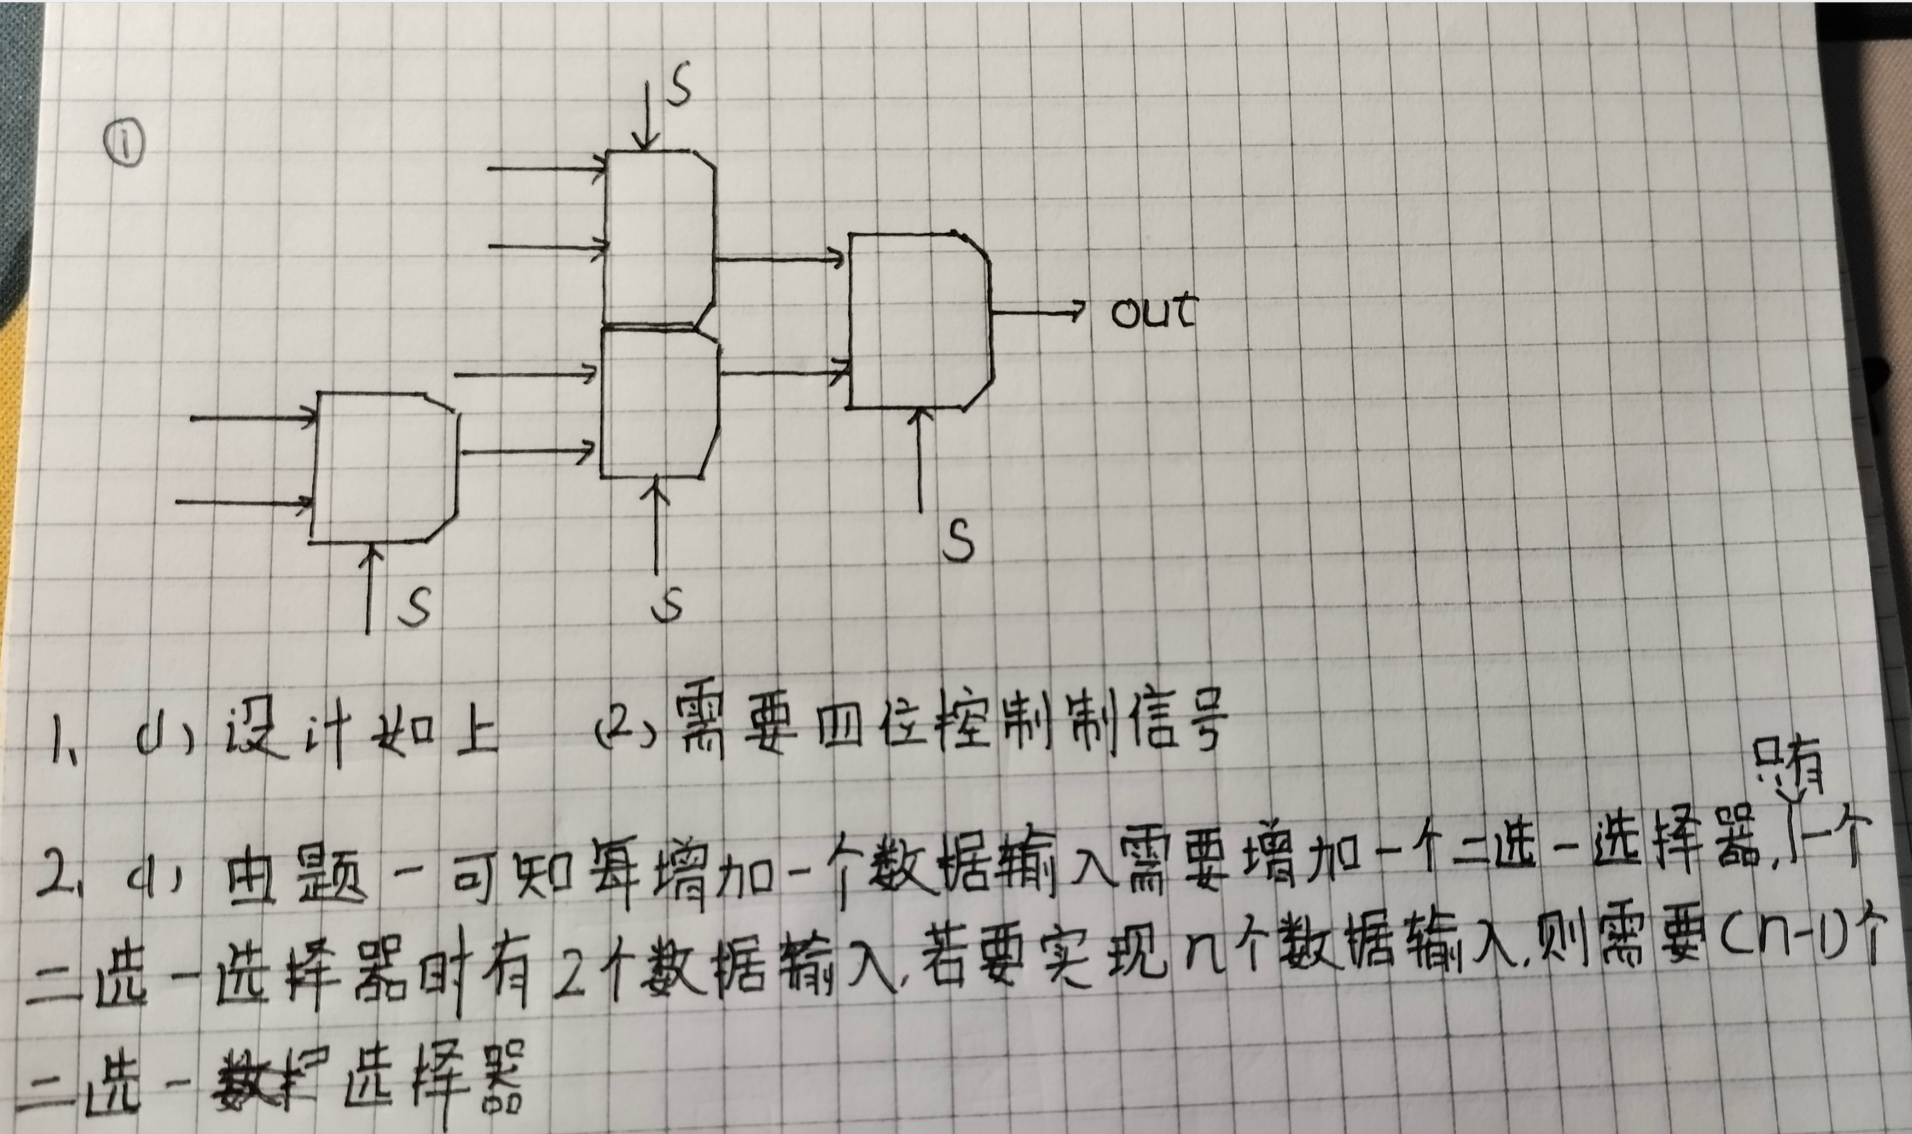 ①
S
out
S
S
S
1、(1)设计如上 (2)需要四位控制制信号
只有
2、(1)由题一可知每增加一个数据输入需要增加一个二选一选择器,一个
二选一选择器时有2个数据输入,若要实现n个数据输入,则需要(n-1)个
二选一选择器